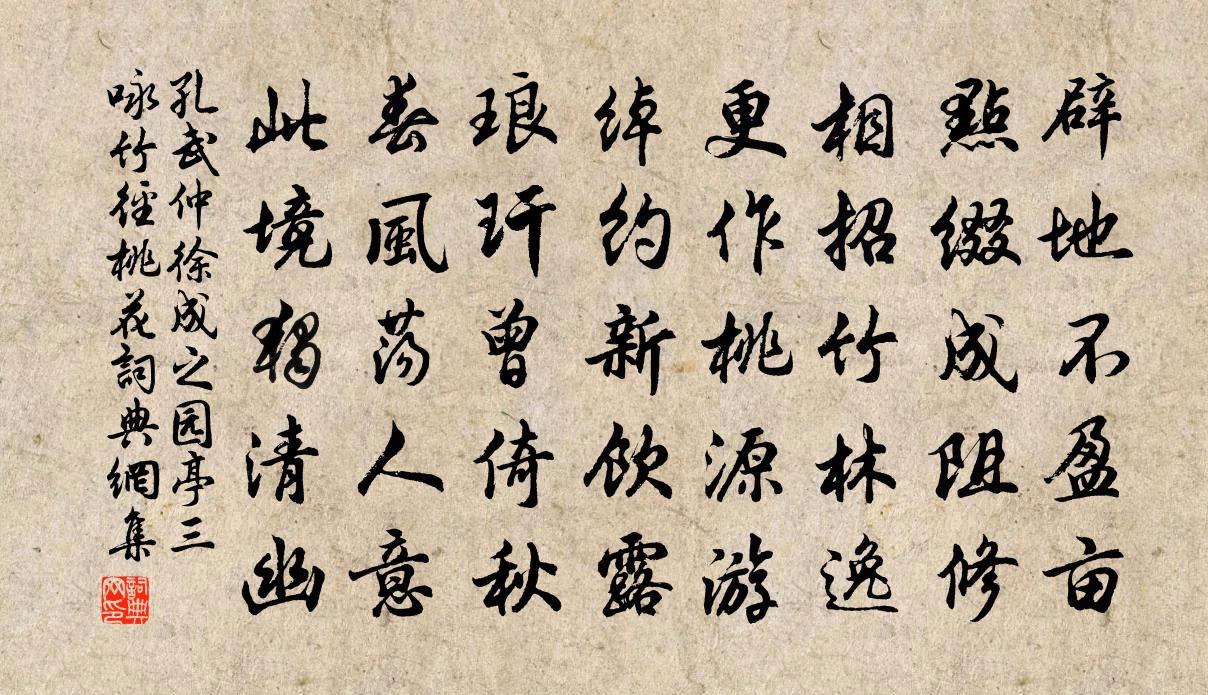 辟地不盈亩
點缀成阻修
相招竹林逸
更作桃源游
绰约新饮露
琅玕曾倚秋
春風荡人意
此境獨清幽
孔武仲徐成之园亭三
咏竹徑桃花詞典網集
詞典網印